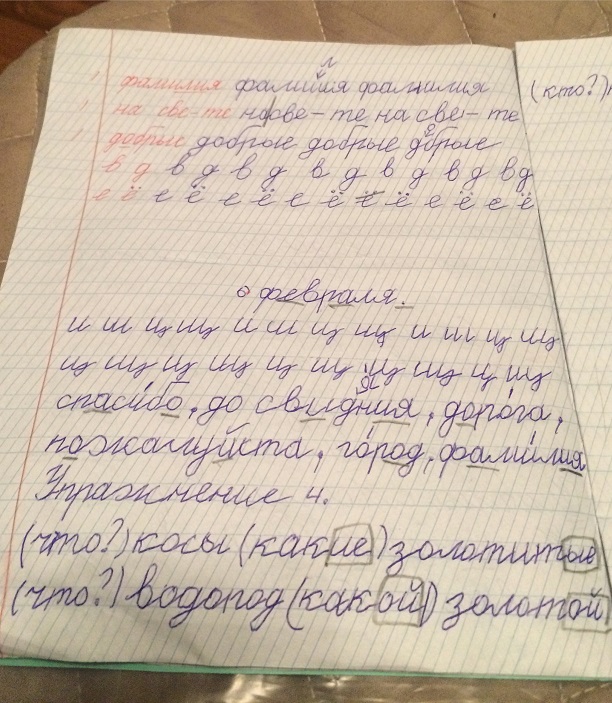 фамилия фамилия фамилия
на све-те на све-те на све-те
добрые добрые добрые добрые
в д в д в д в д в д в д в д
е ё е ё е ё е ё е ё е ё е ё
6 февраля.
и ш ц щ и ш ц щ и ш ц щ
ц щ ц щ ц щ ц щ ц щ
спасибо, до свидния, доро́га,
пожалуйкта, го́род, фами́лия
Упражнение 4.
(что?) косы (какие) золотитые
(что?) водопод (какой) золотой
(кто?)